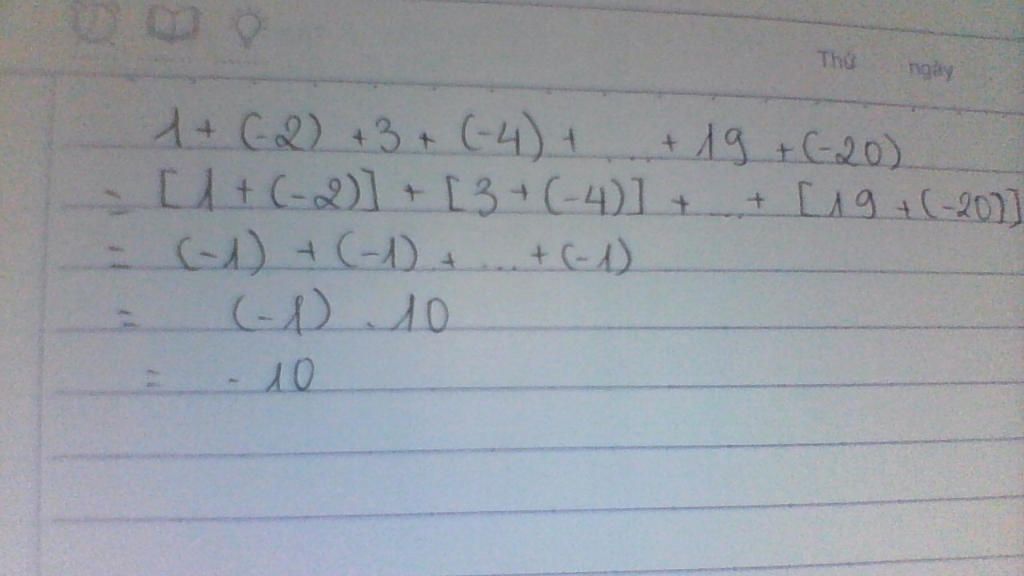 Thứ ngày
1 + (-2) + 3 + (-4) + ... + 19 + (-20)
= [1 + (-2)] + [3 + (-4)] + ... + [19 + (-20)]
= (-1) + (-1) + ... + (-1)
= (-1) . 10
= - 10